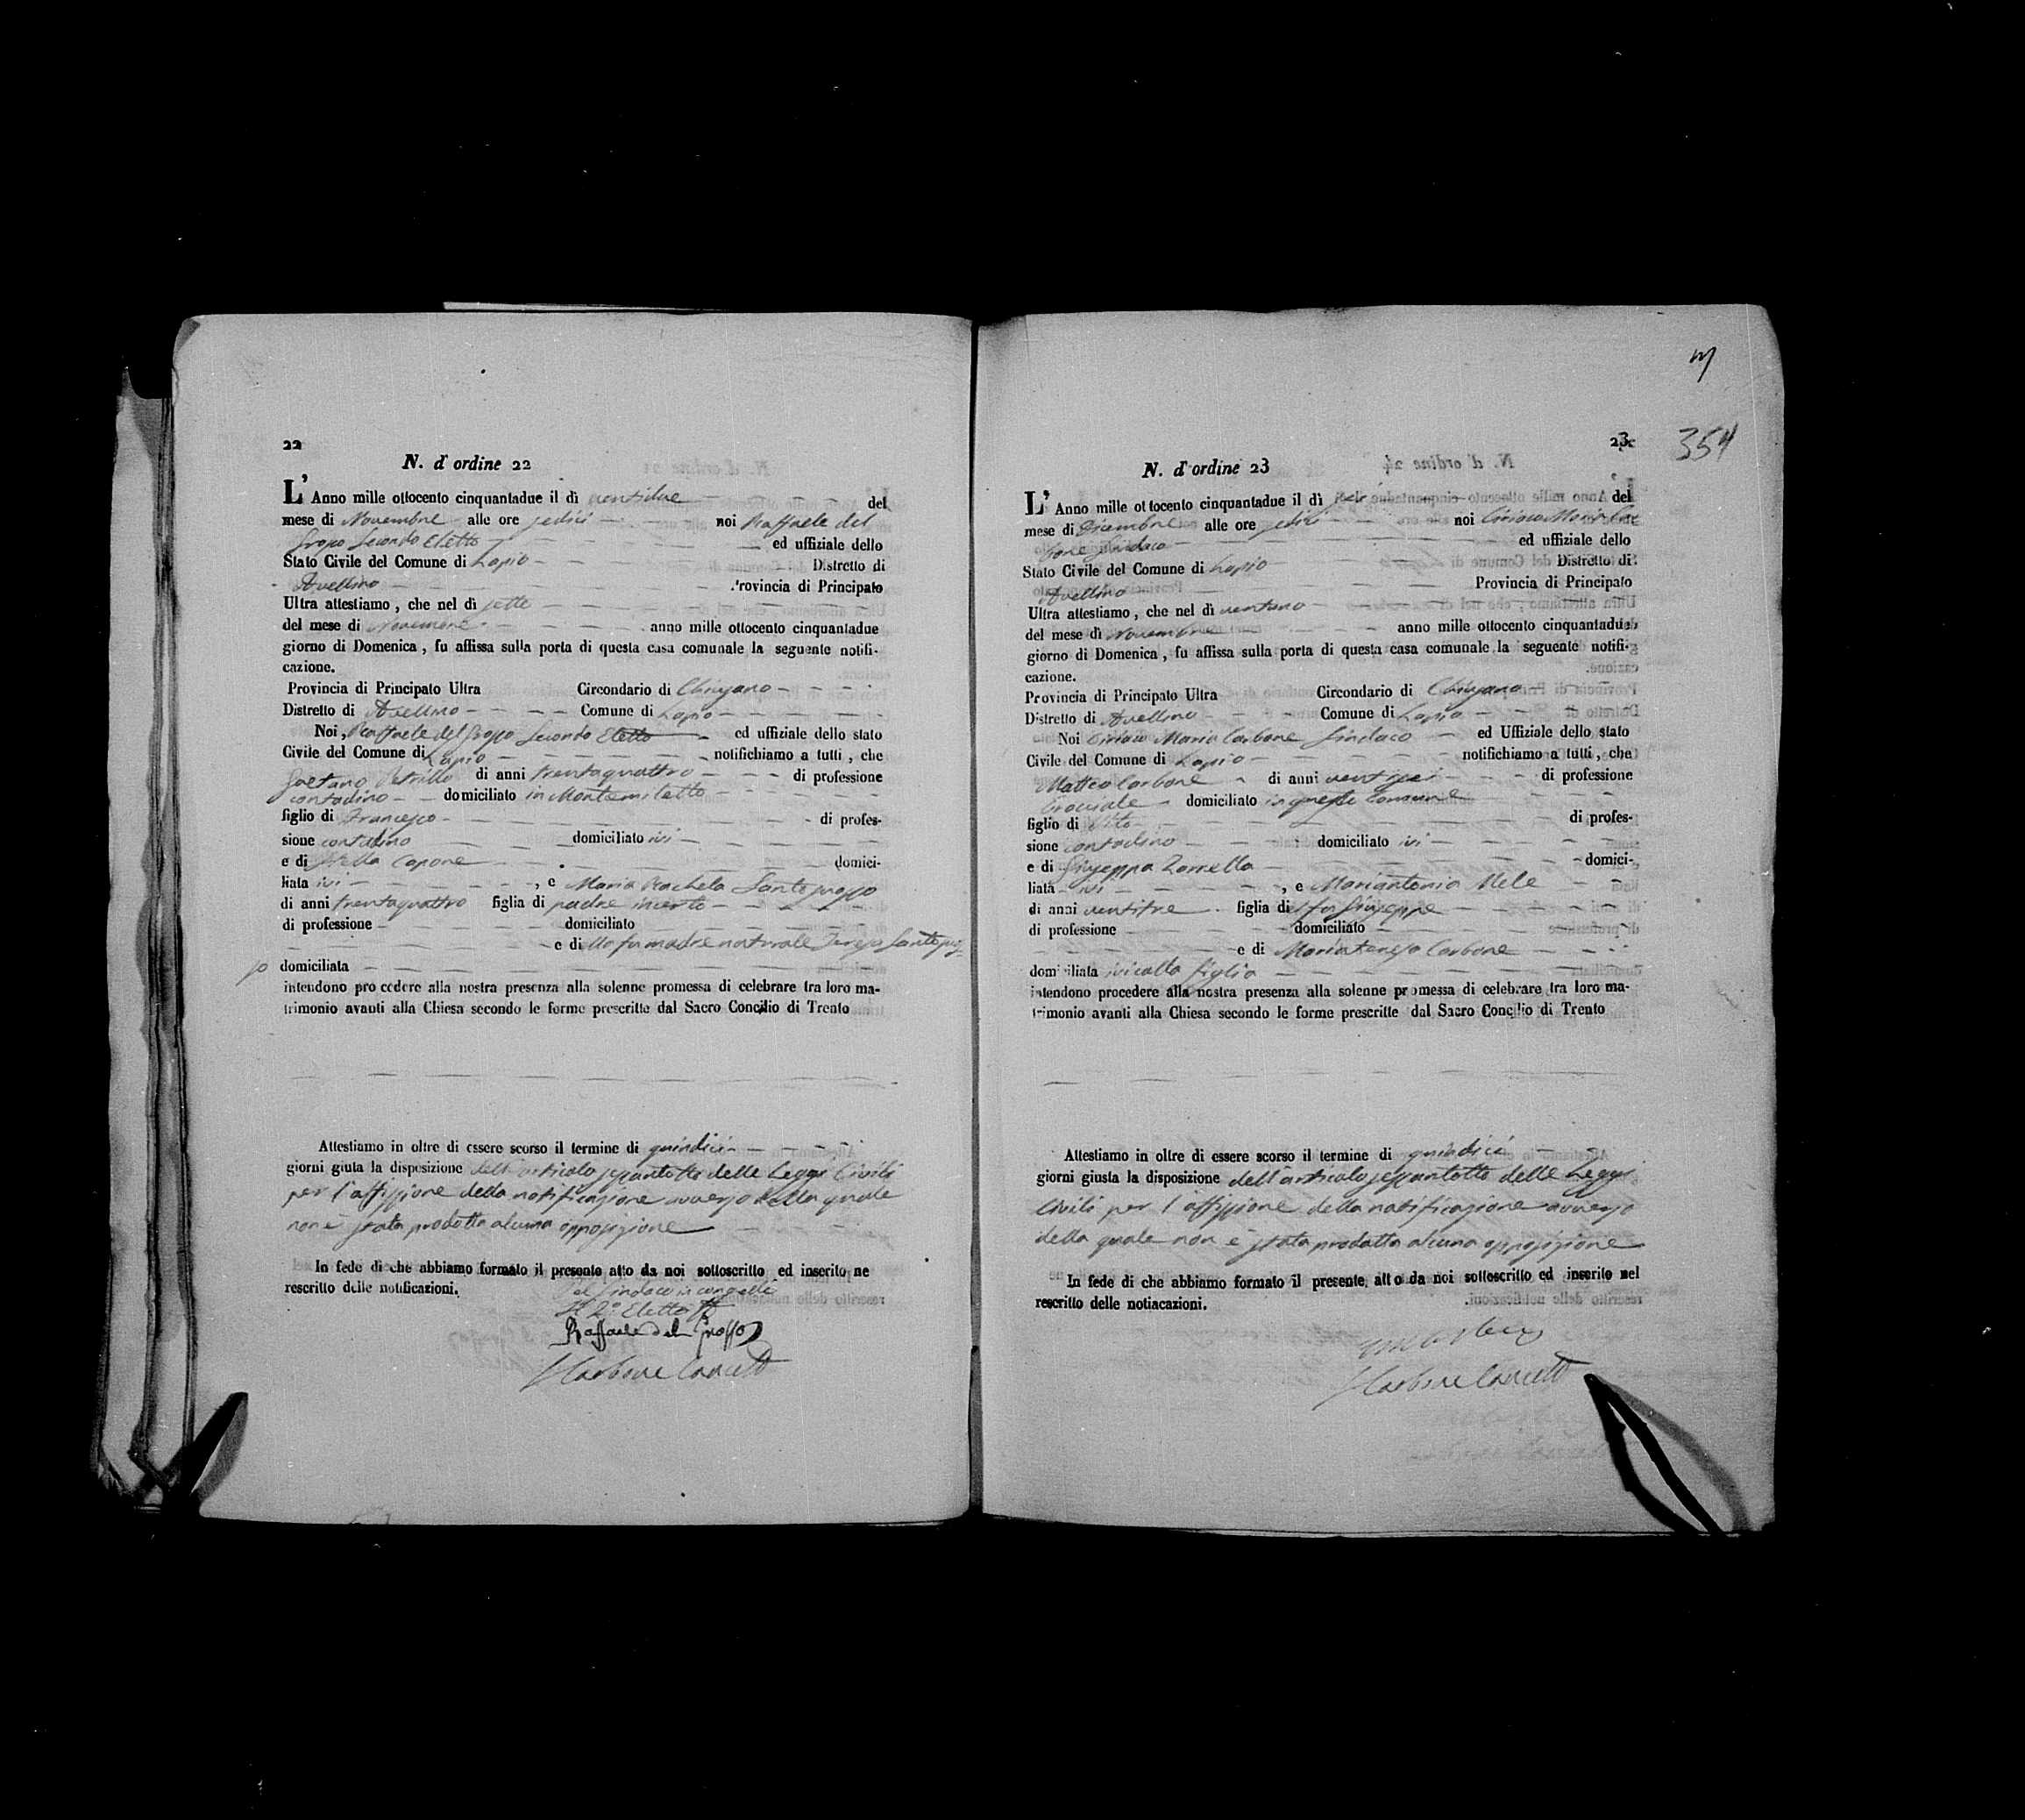 22
N. d' ordine 22
L' Anno mille ottocento cinquantadue il dì ventidue del
mese di Novembre alle ore sedici noi Raffaele del
Grosso Secondo Eletto ed uffiziale dello
Stato Civile del Comune di Lapio Distretto di
Avellino Provincia di Principato
Ultra attestiamo, che nel dì sette
del mese di Novembre anno mille ottocento cinquantadue
giorno di Domenica, fu affissa sulla porta di questa casa comunale la seguente notifi-
cazione.
Provincia di Principato Ultra Circondario di Chiusano
Distretto di Avellino Comune di Lapio
Noi, Raffaele del Grosso Secondo Eletto ed uffiziale dello stato
Civile del Comune di Lapio notifichiamo a tutti, che
Gaetano Petrillo di anni trentaquattro di professione
contadino domiciliato in Montemiletto
figlio di Francesco di profes-
sione contadino domiciliato ivi
e di Stella Capone domici-
liata ivi, e Maria Rachela Santosuosso
di anni trentaquattro figlia di padre incerto
di professione domiciliato
e di lla fu madre naturale Teresa Santosuos=
so domiciliata
intendono procedere alla nostra presenza alla solenne promessa di celebrare tra loro ma-
trimonio avanti alla Chiesa secondo le forme prescritte dal Sacro Concilio di Trento
Attestiamo in oltre di essere scorso il termine di quindici
giorni giuta la disposizione dell'articolo sessantotto delle Leggi Civili
per l'affissione della notificazione avverso della quale
non è stata prodotta alcuna opposizione
In fede di che abbiamo formato il presente atto da noi sottoscritto ed inserito ne
rescritto delle notificazioni.
Pel Sindaco in congedo
Il 2° Eletto
Raffaele del Grosso
Carbone Cancell
354
23
N. d' ordine 23
L' Anno mille ottocento cinquantadue il dì sei del
mese di Dicembre alle ore sedici noi Ciriaco Maria Car
bone Sindaco ed uffiziale dello
Stato Civile del Comune di Lapio Distretto di
Avellino Provincia di Principato
Ultra attestiamo, che nel dì ventuno
del mese di Novembre anno mille ottocento cinquantadue
giorno di Domenica, fu affissa sulla porta di questa casa comunale la seguente notifi-
cazione.
Provincia di Principato Ultra Circondario di Chiusano
Distretto di Avellino Comune di Lapio
Noi Ciriaco Maria Carbone Sindaco ed Uffiziale dello stato
Civile del Comune di Lapio notifichiamo a tutti, che
Matteo Carbone di anni ventisei di professione
domiciliato in questo Comune
figlio di Vito di profes-
sione contadino domiciliato ivi
e di Giuseppa Zarrella domici-
liata ivi, e Mariantonia Mele
di anni ventitre figlia del fu Giuseppe
di professione domiciliato
e di Mariateresa Carbone
domiciliata ivi colla figlia
intendono procedere alla nostra presenza alla solenne promessa di celebrare tra loro ma-
trimonio avanti alla Chiesa secondo le forme prescritte dal Sacro Concilio di Trento
Attestiamo in oltre di essere scorso il termine di quindici
giorni giusta la disposizione dell'articolo sessantotto delle Leggi
Civili per l'affissione della notificazione avverso
della quale non è stata prodotta alcuna opposizione
In fede di che abbiamo formato il presente atto da noi sottoscritto ed inserito nel
rescritto delle notiacazioni.
Carbone Cancell